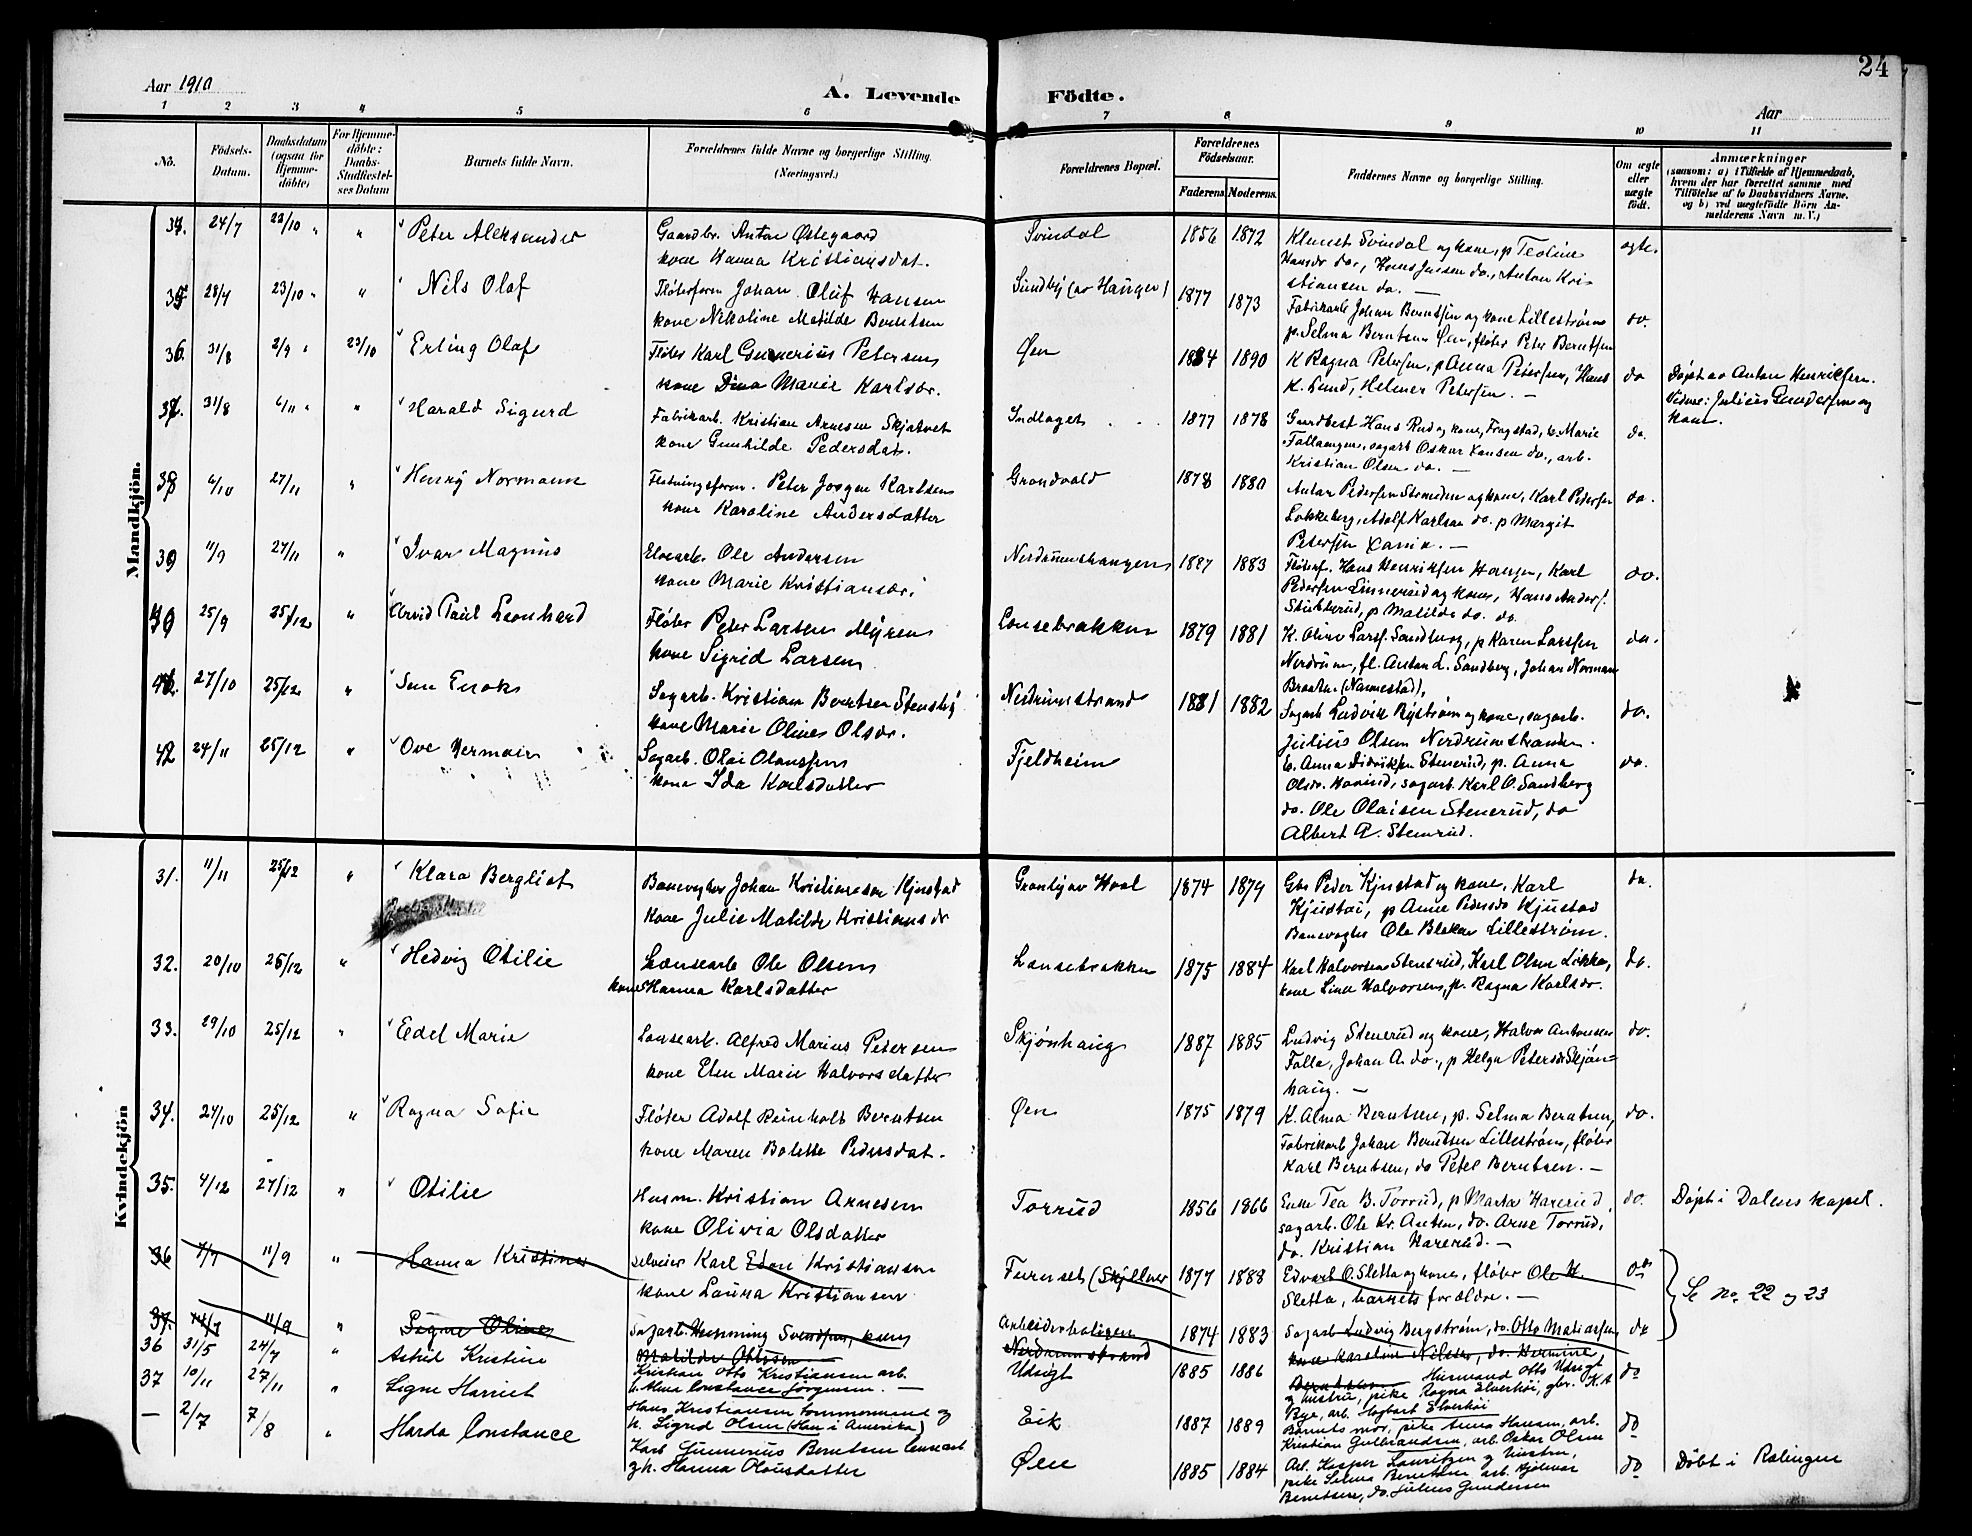 24
Aar 1910
A. Levende Födte.
Aar
1 2 3 4 5 6 7 8 9 10 11
No. Födsels-Datum. Daabsdatum (ogsaa for Hjemme-döbte) For Hjemme-döbte: Daabs-Stadfæstel-ses Datum Barnets fulde Navn. Forældrenes fulde Navne og borgerlige Stilling. (Næringsvei.) Forældrenes Bopæl. Forældrenes Födselsaar. Faderens Moderens. Faddernes Navne og borgerlige Stilling. Om ægte eller uægte födt. Anmærkninger (saasom: a) i Tilfælde af Hjemmedaab, hvem der har forrettet samme med Tilföielse af to Daabsvidners Navne. og b) ved uægtefödte Börn An-melderens Navn m. V.)
Mandkjön.
34. 24/7 23/10 " " Peter Aleksander Gaardbr. Anton Østegaard Svindal 1856 1872 Klemet Svindal og kone, p Teoline ægte.
kone Hanna Kristiansdat. Hansdr do., Hans Jensen do., Anton Kri-
stiansen do. —
35 28/7 23/10 " " Nils Olaf Fløterform Johan Oluf Hansen Sundby (av Haugen) 1877 1873 Fabrikarb Johan Berntsen og kone Lillestrøm do.
kone Nikoline Matilde Berntsen p. Selma Berntsen Øen, fløter Peter Berntsen
36. 31/8 2/9 " 23/10 Erling Olaf Fløter Karl Gunerius Petersen Øen 1884 1890 K Ragna Petersen, p Anna Petersen, Hans do Døpt av Anton Henriksen.
kone Dina Marie Karlsdr. K. Lund, Helmer Petersen. — Vidne: Julius Gundersen og
kone.
37. 31/8 6/11 " " Harald Sigurd Fabrikarb. Kristian Arnesen Skjatvet Indlaget 1877 1878 Gaardbest Hans Rud og kone, Frogstad, e. Marie do.
kone Gunhilde Pedersdat. Fallaengen, sagarb Oskar Hansen do., arb.
Kristian Olsen do. —
38 6/10 27/11 " Henry Normann Fletningsform. Peter Jørgen Karlsen Grøndvold 1878 1880 Anton Pedersen Stomeden og kone, Karl Pedersen do.
kone Karoline Andersdatter Løkkeberg, Adolf Karlsen do. p Margit
Petersen —
39 11/9 27/11 " Ivar Magnus Elvearb. Ole Andersen Nerdrumshaugen 1887 1883 Fløterf. Hans Henriksen Haugen, Karl do.
kone Marie Kristiansdr. Pedersen Linnerud og kone, Hans Anders.
Stubberud, p Matilde do. do.
40 25/9 25/12 " Arvid Paul Leonhard Fløter Peter Larsen Myren Lensebrakken 1879 1881 K. Oline Larsf. Sandberg, p Karen Larssen do.
kone Sigrid Larsen Nerdrum, fl. Anton L. Sandberg, Johan Norman
Braaten (Nannestad),
27/10 25/12 " Sagarb. Kristian Berntsen Stensby Nerdrumstrand 1881 1882 Sagarb Ludvik Bystrøm og kone, sagarb. do.
kone Marie Oline Olsdr. Julius Olsen Nerdrumstranden.
42 24/11 25/12 " Ove Herman Sagarb. Olai Olaussen Fjeldheim e. Anna Didriksen Stenerud, p. Anna do.
kone Ida Karlsdatter Olsdr. Haarud, sagarb. Karl O. Sandberg
do. Ole Olaisen Stenerud, do
Albert A. Stenrud.
Kvindekjön
31. 11/11 25/12 " Klara Bergliot Banevogter Johan Kristiansen Kjustad Granli av Hval 1874 1879 Gbr Peder Kjustad og kone, Karl do.
kone Julie Matilde Kristiansdr Kjustad, p Anne Pedersdr Kjustad
Banevogter Ole Blaker Lillestrøm.
32. 20/10 26/12 " Hedvig Otilie Lensearb Ole Olsen Lensebrakken 1875 1884 Karl Halvorsen Stenerud, Karl Olsen Løkka, do.
kone Hanna Karlsdatter kone Lina Halvorsen, p. Ragna Karlsdr.
33. 29/10 25/12 " Edel Marie Lensearb. Alfred Marius Petersen Skjønhaug 1887 1885 Ludvig Stenerud og kone, Halvor Antonsen do.
kone Elen Marie Halvorsdatter Falla, Johan A. do., p Helga Petersdr Skjøn-
haug. —
34. 24/10 25/12 " Ragna Sofie Fløter Adolf Reinholt Berntsen Øen 1875 1879 K. Alma Berntsen, p. Selma Berntsen, do.
kone Maren Bolette Pedersdat. Fabrikarb Johan Berntsen Lillestrøm, fløter
Karl Berntsen, do Peter Berntsen. —
35. 4/12 27/12 " Otilie Husm. Kristian Arnesen Torrud 1856 1866 Enke Tea B. Torrud, p Marta Harerud, do. Døpt i Dalens kapel.
kone Olivia Olsdatter sagarb. Ole Kr. Antsen, do. Arne Torrud,
do. Kristian Harerud. —
36 7/7 11/9 " Hanna Kristine Karl Edon Kristiansen Furuset (Skjellner 1877 1888 Edvart O. Sletta og kone, fløter Ole H. do Se no. 22 og 23
kone Laura Kristiansen Sletta, barnets forældre. —
37. 14/7 11/9 " Signe Oline Sagarb. Henning Svendsen, kone Arbeiderboligen 1874 1883 Sagarb Ludvig Bergstrøm, do. Otto Matiassen do
Matilde Ottesen Nerdrumstrand kone Karoline Nilsen, do. Hermine
36 31/5 24/7 " Astrid Kristine Kristian Otto Kristiansen arb. Udsigt 1885 1886 Husmand Otto Udsigt do
h. Alma Constance Jørgensen. — og hustru, pike Ragna Elverhøi, gbr. K. A
37 10/11 27/11 " Signe Harriet Hans Kristiansen Tommermand og Eik 1887 1889 Bye, arb. Hagbart Elverhøi do
h. Sigrid Olsen (Han i Amerika) Barnets mor, pike Anna Hansen, arb.
Kristian Gulbrandsen, arb. Oskar Olsen
— 2/7 7/8 " Harda Constance Karl Gunnerius Berntsen lensearb Øen 1885 1884 Arb. Kasper Lauritzen og hustru, do Døbt i Rælingen
og h. Hanna Olausdatter pike Selma Berntsen, arb. Hjelmar
Berntsen, do. Julius Gundersen